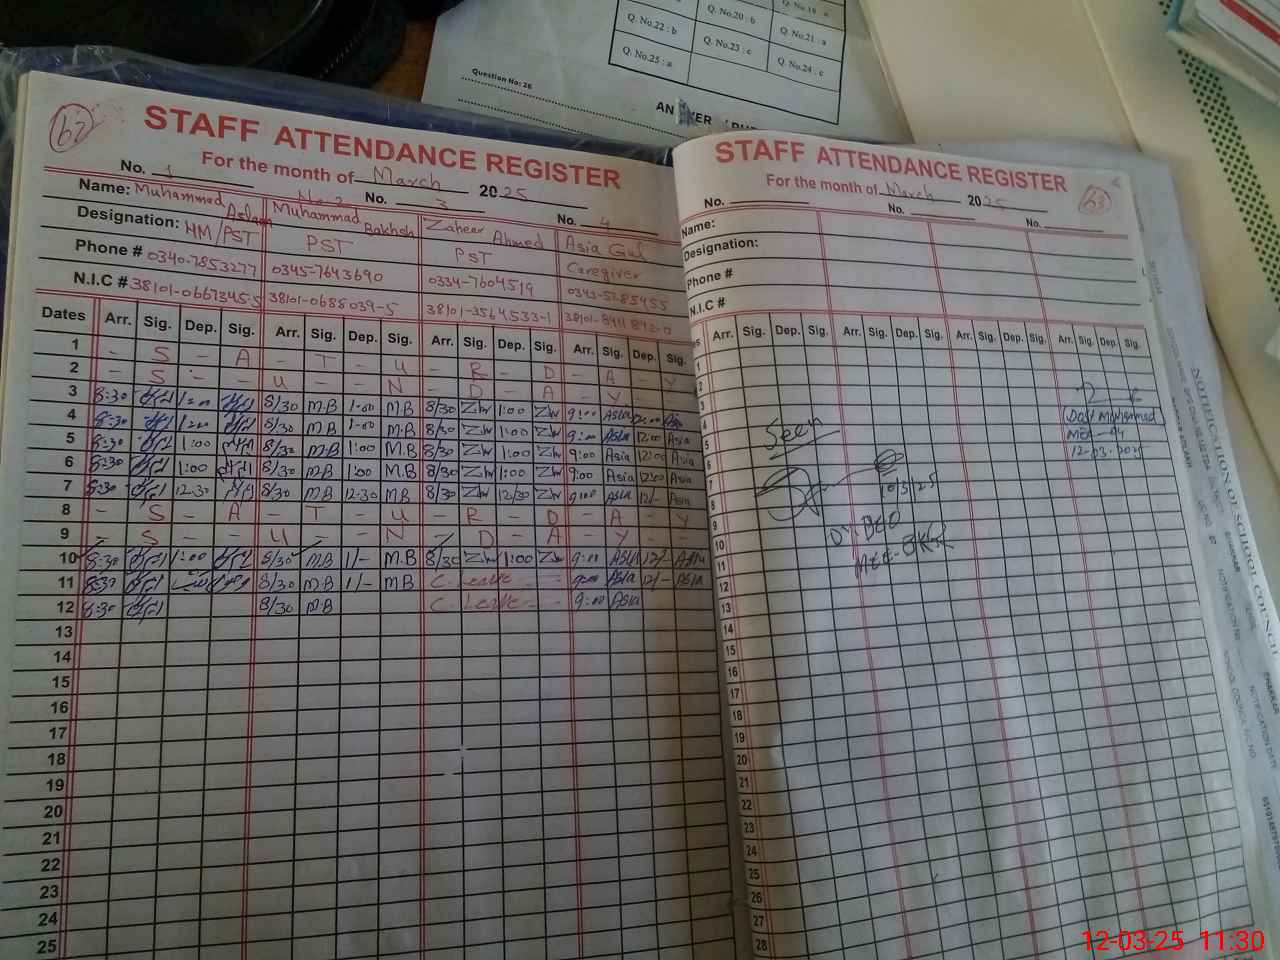 Q. No.19 : a
Q. No.20 : b
Q. No.21 : a
Q. No.22 : b
Q. No.23 : c
Q. No.24 : c
Q. No.25 : a
Question No: 26
62
STAFF ATTENDANCE REGISTER
For the month of March 2025
No. 1 No. 2 No. 3 No. 4
Name: Muhammad Aslam Muhammad Bakhsh Zaheer Ahmed Asia Gul
Designation: HM/PST PST PST Caregiver
Phone # 0340-7853277 0345-7643690 0334-7604519
N.I.C # 38101-0667345-5 38101-0688039-5 38101-3564533-1
Dates Arr. Sig. Dep. Sig. Arr. Sig. Dep. Sig. Arr. Sig. Dep. Sig. Arr. Sig. Dep. Sig.
1 - S - A - T - U - R - D - A - Y
2 - S - - U - - N - D - A - Y -
3 8:30 1:00 8/30 M.B 1-00 M.B 8/30 1:00 9:00 Asia 12:00 Asia
4 8:30 1:00 8/30 M.B 1-00 M.B 8/30 1:00 9:00 Asia 12:00 Asia
5 8:30 1:00 8/30 M.B 1:00 M.B 8/30 1:00 9:00 Asia 12:00 Asia
6 8:30 1:00 8/30 M.B 1:00 M.B 8/30 1:00 9:00 Asia 12:00 Asia
7 8:30 12:30 8/30 M.B 12:30 M.B 8/30 12/30 9:00 Asia 12/- Asia
8 - S - A - T - U - R - D - A - Y
9 - S - - U - - N - D - A - Y -
10 8:30 1:00 8/30 M.B 1/- M.B 8/30 1:00 9:00 Asia 12/- Asia
11 8:30 8/30 M.B 1/- M.B C. Leave 9:00 Asia 12/- Asia
12 8:30 8/30 M.B C. Leave 9:00 Asia
13
14
15
16
17
18
19
20
21
22
23
24
25
STAFF ATTENDANCE REGISTER
For the month of March 2025
63
No. No. No.
Name:
Designation:
Phone #
N.I.C #
Arr. Sig. Dep. Sig. Arr. Sig. Dep. Sig. Arr. Sig. Dep. Sig. Arr. Sig. Dep. Sig.
1
2
3
4
5
6
7
8
9
10
11
12
13
14
15
16
17
18
19
20
21
22
23
24
25
26
27
28
Seen
10/3/25
Dy. DEO
MEE-BKR
Dost Muhammad
MEA-94
12-03-2025
NOTIFICATION OF SCHOOL COUNCIL
12-03-25 11:30